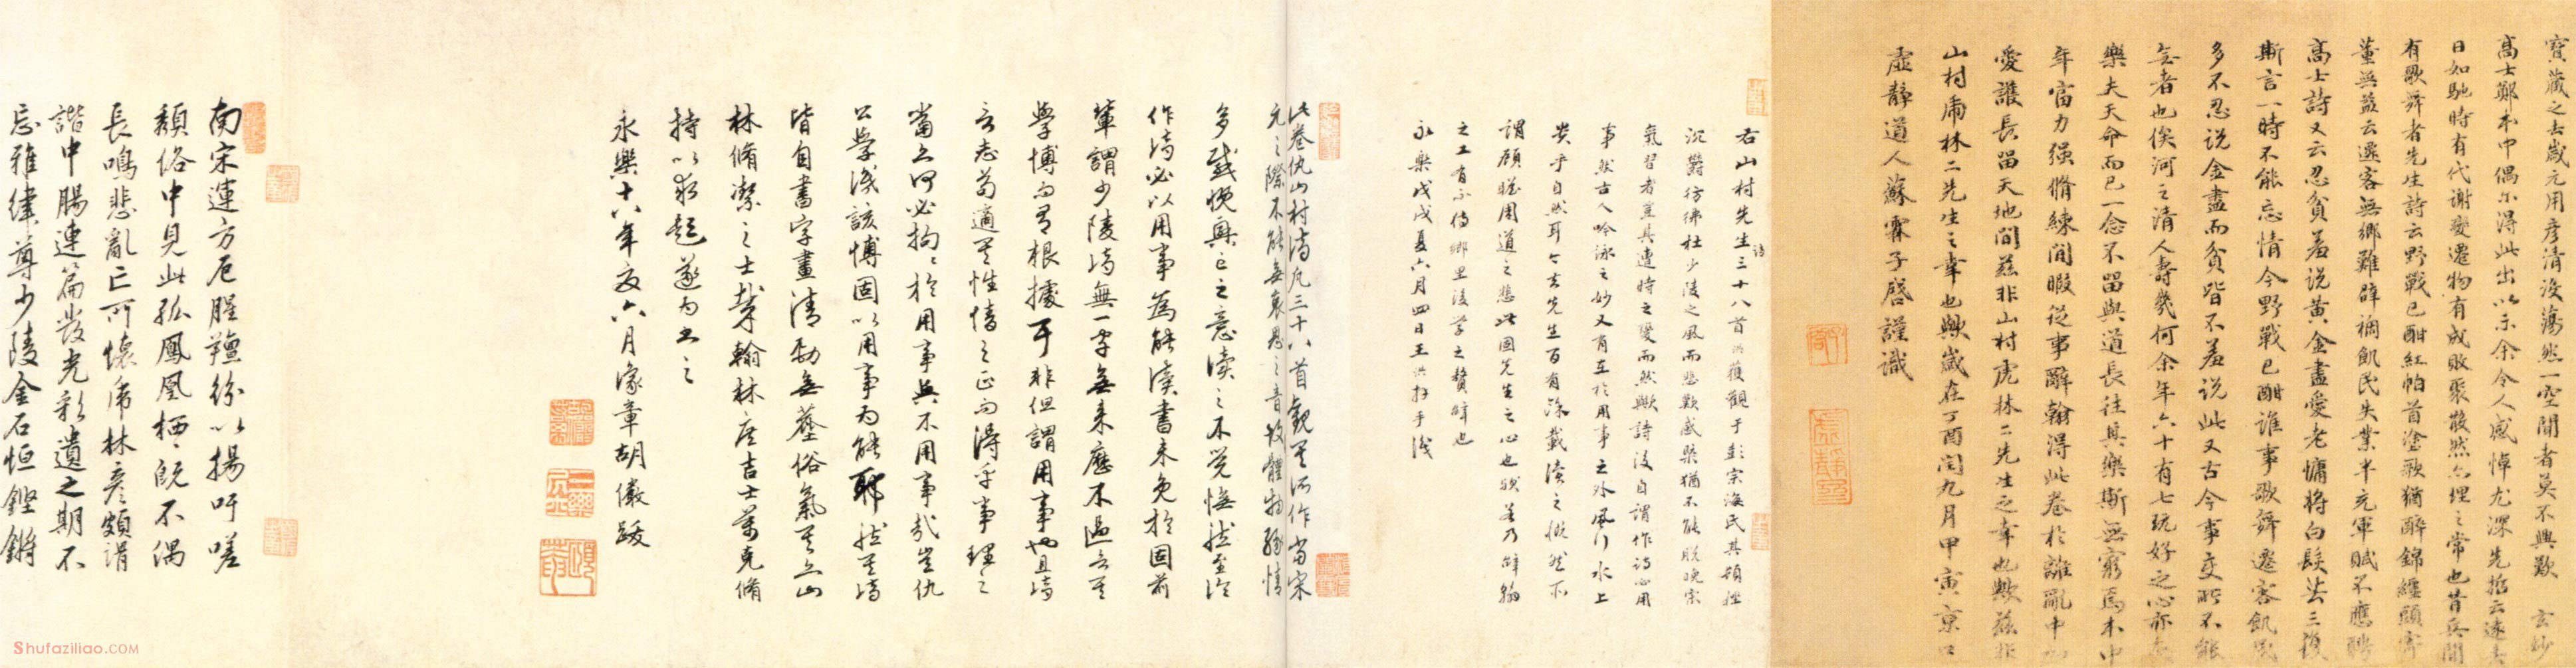 寶藏之去歲元用彦清沒蕩然一空聞者莫不興歎 玄妙
高士鄭本中偶尓得此出以示余令人感悼尤深先哲云逺
日如馳時有代謝變遷物有成敗聚散然亦理之常也昔兵間
有歌舞者先生詩云野戰已酣紅帕首塗歌猶醉錦纏頭寄
董無益云遷客無鄉難辟榖飢民失業半充軍賦不應聘
高士詩又云忍貧羞說黃金盡愛老慵將白髮芸三復
斯言一時不能忘情今野戰已酣誰事歌舞遷客飢民
多不忍說金盡而貧皆不羞說此又古今事変所不能
無者也俟河之清人壽幾何余年六十有七玩好之心亦
樂夫天命而已一念不留與道長往其樂斯無窮焉本中
年富力强脩練閒暇從事辭翰得此卷於離亂中
愛護長留天地間茲非山村虎林二先生之幸也歟茲非
山村虎林二先生之幸也歟歲在丁酉閏九月甲寅京口
虛靜道人蘇霖子啓謹識
右山村先生詩三十八首洪獲觀于彭宗海氏其頓挫
沉鬱彷彿杜少陵之風而悲歎感槩猶不能脫晚宋
氣習者豈其遭時之變而然歟詩後自謂作詩必用
事然古人吟詠之妙又有在於用事之外風行水上
貴乎自然耳今去先生百有餘載讀之慨然不
謂顧瞻周道之悲此固先生之心也哉若乃辭翰
之工有不待鄉里後學之贅辭也
永樂戊戌夏六月四日王洪拜手識
此卷仇山村詩凡三十八首觀其所作當宋
元之際不能無哀思之音故體物緣情
多感慨興亡之意讀之不覺憮然至論
作詩必以用事為能讀書未免於固前
輩謂少陵詩無一字無來歷不過言其
學博而有根據耳非但謂用事也且詩
言志苟適其性情之正而得乎事理之
當亦何必拘拘於用事與不用事哉豈仇
公學識該博固以用事為能耶然其詩
皆自書字畫清勁無塵俗氣其亦山
林脩潔之士哉翰林庶吉士蕭克脩
持以求題遂為書之
永樂十八年夏六月豫章胡儼跋
南宋運方厄腥羶紛以揚吁嗟
頹俗中見此孤鳳凰栖栖既不偶
長鳴悲亂亡可懷虎林彦頗謂
諧中腸連篇發光彩遺之期不
忘雅律尊少陵金石恒鏗鏘
Shufaziliao.COM